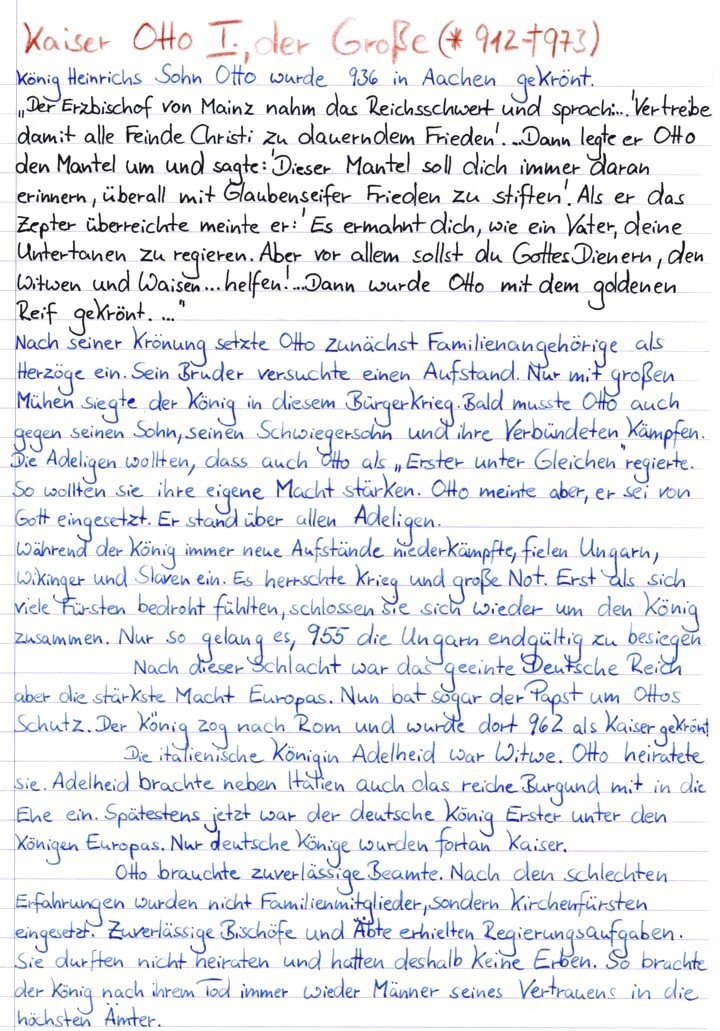 Kaiser Otto I., der Große (* 912-†973)
König Heinrichs Sohn Otto wurde 936 in Aachen gekrönt.
„Der Erzbischof von Mainz nahm das Reichsschwert und sprach:...'Vertreibe
damit alle Feinde Christi zu dauerndem Frieden'...Dann legte er Otto
den Mantel um und sagte:'Dieser Mantel soll dich immer daran
erinnern, überall mit Glaubenseifer Frieden zu stiften'. Als er das
Zepter überreichte meinte er:'Es ermahnt dich, wie ein Vater, deine
Untertanen zu regieren. Aber vor allem sollst du Gottes Dienern, den
Witwen und Waisen...helfen!'...Dann wurde Otto mit dem goldenen
Reif gekrönt. ..."
Nach seiner Krönung setzte Otto zunächst Familienangehörige als
Herzöge ein. Sein Bruder versuchte einen Aufstand. Nur mit großen
Mühen siegte der König in diesem Bürgerkrieg. Bald musste Otto auch
gegen seinen Sohn, seinen Schwiegersohn und ihre Verbündeten kämpfen.
Die Adeligen wollten, dass auch Otto als „Erster unter Gleichen" regierte.
So wollten sie ihre eigene Macht stärken. Otto meinte aber, er sei von
Gott eingesetzt. Er stand über allen Adeligen.
Während der König immer neue Aufstände niederkämpfte, fielen Ungarn,
Wikinger und Slaven ein. Es herrschte Krieg und große Not. Erst als sich
viele Fürsten bedroht fühlten, schlossen sie sich wieder um den König
zusammen. Nur so gelang es, 955 die Ungarn endgültig zu besiegen
Nach dieser Schlacht war das geeinte Deutsche Reich
aber die stärkste Macht Europas. Nun bat sogar der Papst um Ottos
Schutz. Der König zog nach Rom und wurde dort 962 als Kaiser gekrönt
Die italienische Königin Adelheid war Witwe. Otto heiratete
sie. Adelheid brachte neben Italien auch das reiche Burgund mit in die
Ehe ein. Spätestens jetzt war der deutsche König Erster unter den
Königen Europas. Nur deutsche Könige wurden fortan Kaiser.
Otto brauchte zuverlässige Beamte. Nach den schlechten
Erfahrungen wurden nicht Familienmitglieder, sondern Kirchenfürsten
eingesetzt. Zuverlässige Bischöfe und Äbte erhielten Regierungsaufgaben.
Sie durften nicht heiraten und hatten deshalb keine Erben. So brachte
der König nach ihrem Tod immer wieder Männer seines Vertrauens in die
höchsten Ämter.